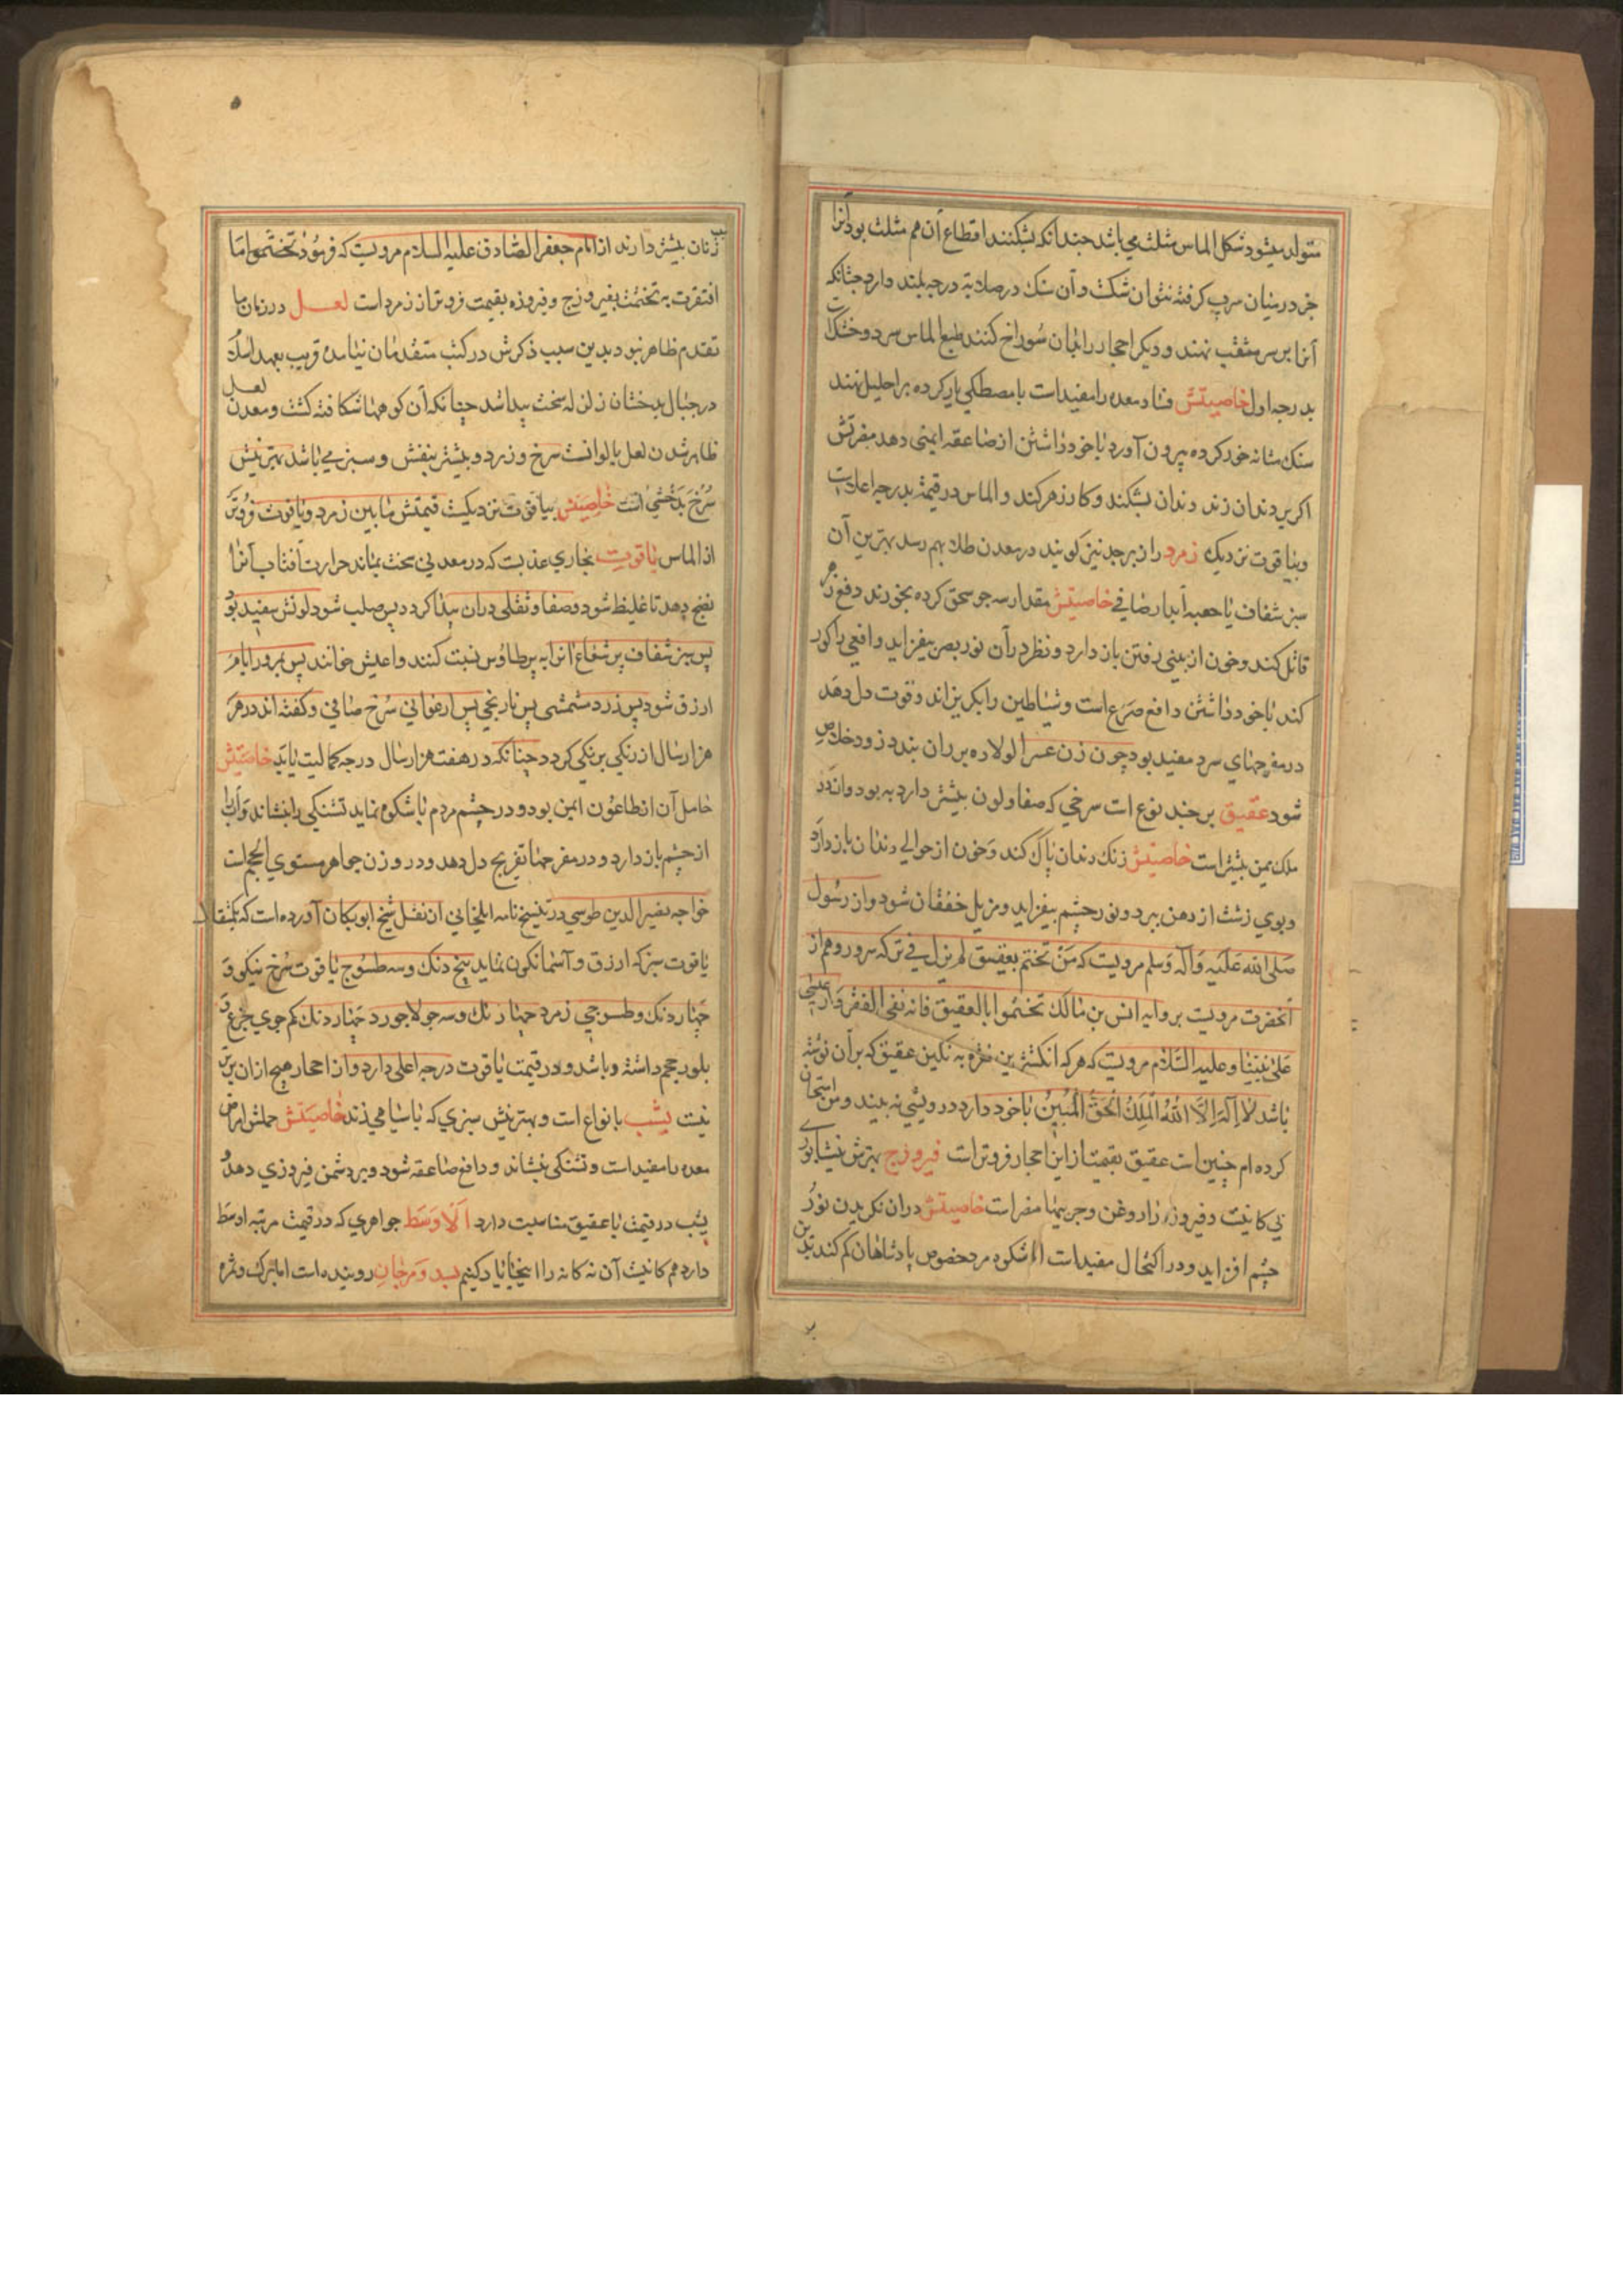 متولد میشود شکل الماس مثلث می باشد چندانکه بشکنند اقطاع آن هم مثلث بود آنرا
جز در میان سرب کرفته نتوان شکست و آن سنک در صلابة درجه بلند دارد چنانکه
آنرا بر سر مثقب نهند و دیکر احجار را بان سوراخ کنند طبع الماس سرد و خشکست
بدرجه اول خاصیتش فساد معده را مفید است با مصطکی یار کرده بر احلیل نهند
سنک مثانه خورد کرده بیرون آورد با خود داشتن از صاعقه ایمنی دهد مضرتش
اکر بر دندان زند دندان بشکند و کار زهر کند و الماس در قیمة بدرجه اعلاست
و بیاقوت نزدیک زمرد را زبرجد نیز کویند در معدن طلا بهم رسد بهترین آن
سبز شفاف با آبدار صافی خاصیتش مقدار سه جو سحق کرده بخورند دفع زهر
قاتل کند و خون از بینی رفتن باز دارد و نظر در آن نور بصر بیفزاید و افعی را کور
کند با خود داشتن دافع صرع است و شیاطین را بکریزاند و قوت دل دهد
در مفرحهای سرد مفید بود چون زن عسر الولاده بر ران بندد زود خلاص
شود عقیق بر چند نوع است سرخی که صفا و لون بیشتر دارد به بود و آن در
ملک یمن بیشتر است خاصیتش زنک دندان پاک کند و خون از حوالی دندان باز دارد
و بوی زشت از دهن ببرد و نور چشم بیفزاید و مزیل خفقان شود و از رسول
صلی الله علیه و آله وسلم مرویست که من تختم بعقیق لم یزل فی برکه سرور و هم از
آنحضرت مرویست بروایه انس بن مالک تختموا بالعقیق فانه نفی الفقر و از عیسی
علی نبینا و علیه السلام مرویست که هر که انکشترین نقره به نکین عقیق که بر آن نوشته
باشد لا اله الا الله الملک الحق المبین با خود دارد درویشی نه بیند و من امتحان
کرده ام چنین است عقیق بقیمت از این احجار فروتر است فیروزج بهترش نیشابوری
کانیست و فیروزه را روغن و چربیها مضر است خاصیتش در آن نکریدن نور
چشم افزاید و در اکتحال مفید است اما شکوه مرد خصوص پادشاهان کم کند بدین
سبب زنان بیشتر دارند از امام جعفر الصادق علیه السلام مرویست که فرمود تختموا ما
افتقرت ید تختمت بفیروزج و فیروزه بقیمت فروتر از زمرد است لعل در زمان ما
تقدم ظاهر نبود بدین سبب ذکرش در کتب متقدمان نیامده قریب بعهد اسلام
در جبال بدخشان زلزله سخت پیدا شد چنانکه آن کوهها شکافته کشت و معدن لعل
ظاهر شد لون لعل بالوانست سرخ و زرد و بیشتر بنفش و سبز می باشد بهترینش
سرخ بدخشی است خاصیتش بیاقوت نزدیکست قیمتش ما بین زمرد و یاقوت فروتر
از الماس یاقوت بخاری عذبست که در معدنی سخت بماند حرارت آفتاب آنرا
نضج دهد تا غلیظ شود و صفا و ثقلی در آن پیدا کردد پس صلب شود لونش سفید بود
پس سبز شفاف پر شعاع انرا به پر طاوس نسبت کنند و اعیش خوانند پس بمرور ایام
ازرق شود پس زرد شمشی پس نارنجی پس ارغوانی سرخ صافی و کفته اند در هر
هزار سال از رنکی برنکی کردد چنانکه در هفت هزار سال درجه کمالیت یابد خاصیتش
حامل آن از طاعون ایمن بود و در چشم مردم با شکوه نماید تشنکی را بنشاند و آب
از چشم باز دارد و در مفرحها تفریح دل دهد و در وزن جواهر مستوی الحجم است
خواجه نصیر الدین طوسی در تنسخ نامه ایلخانی از نقل شیخ ابو ریحان آورده است که یکمثقال
یاقوت سبز که ازرق و آسمانکون نماید پنج دنک و سه طسوج یاقوت سرخ نیکو و
چهار دنک و طسوجی زمرد چهار دنک و سه جو لاجورد چهار دنک کم جوی جزع و
بلور حجم داشته و باشد و در قیمت یاقوت درجه اعلی دارد و از احجار هیچ از آن برتر
نیست یشب بانواع است و بهترینش سبزی که با سیاهی زند خاصیتش حملش امراض
معده را مفید است و تشنکی بنشاند و دافع صاعقه شود و بر دشمن فیروزی دهد
یشب در قیمت با عقیق مناسبت دارد الاوسط جواهری که در قیمت مرتبه اوسط
دارد هم کانیست آن نه کانه را اینجا یاد کنیم بسد و مرجان روینده است اما برک و ثمره